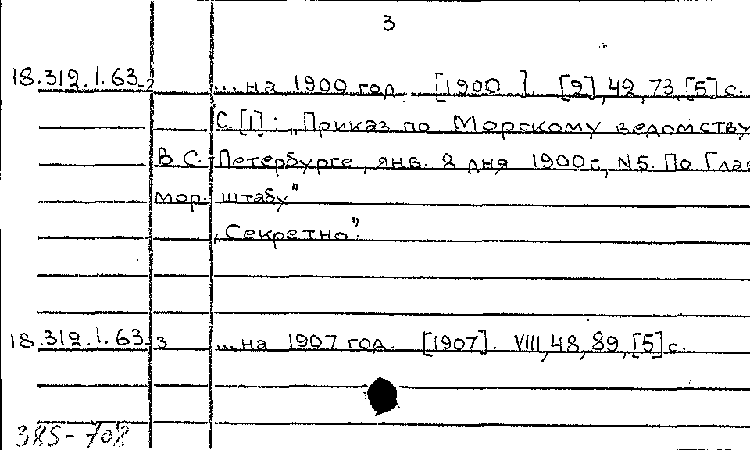 3
18.312.1.63.2 ...на 1900 год. [1900 ] [2], 42, 73, [5] с.
С.[1]: „Приказ по Морскому ведомству
В С. Петербурге, янв. 2 дня 1900 г., N5. По Глав
мор. штабу"
„Секретно".
18.312.1.63.3 ...на 1907 год. [1907]. VIII, 48, 89, [5] с.
385-708